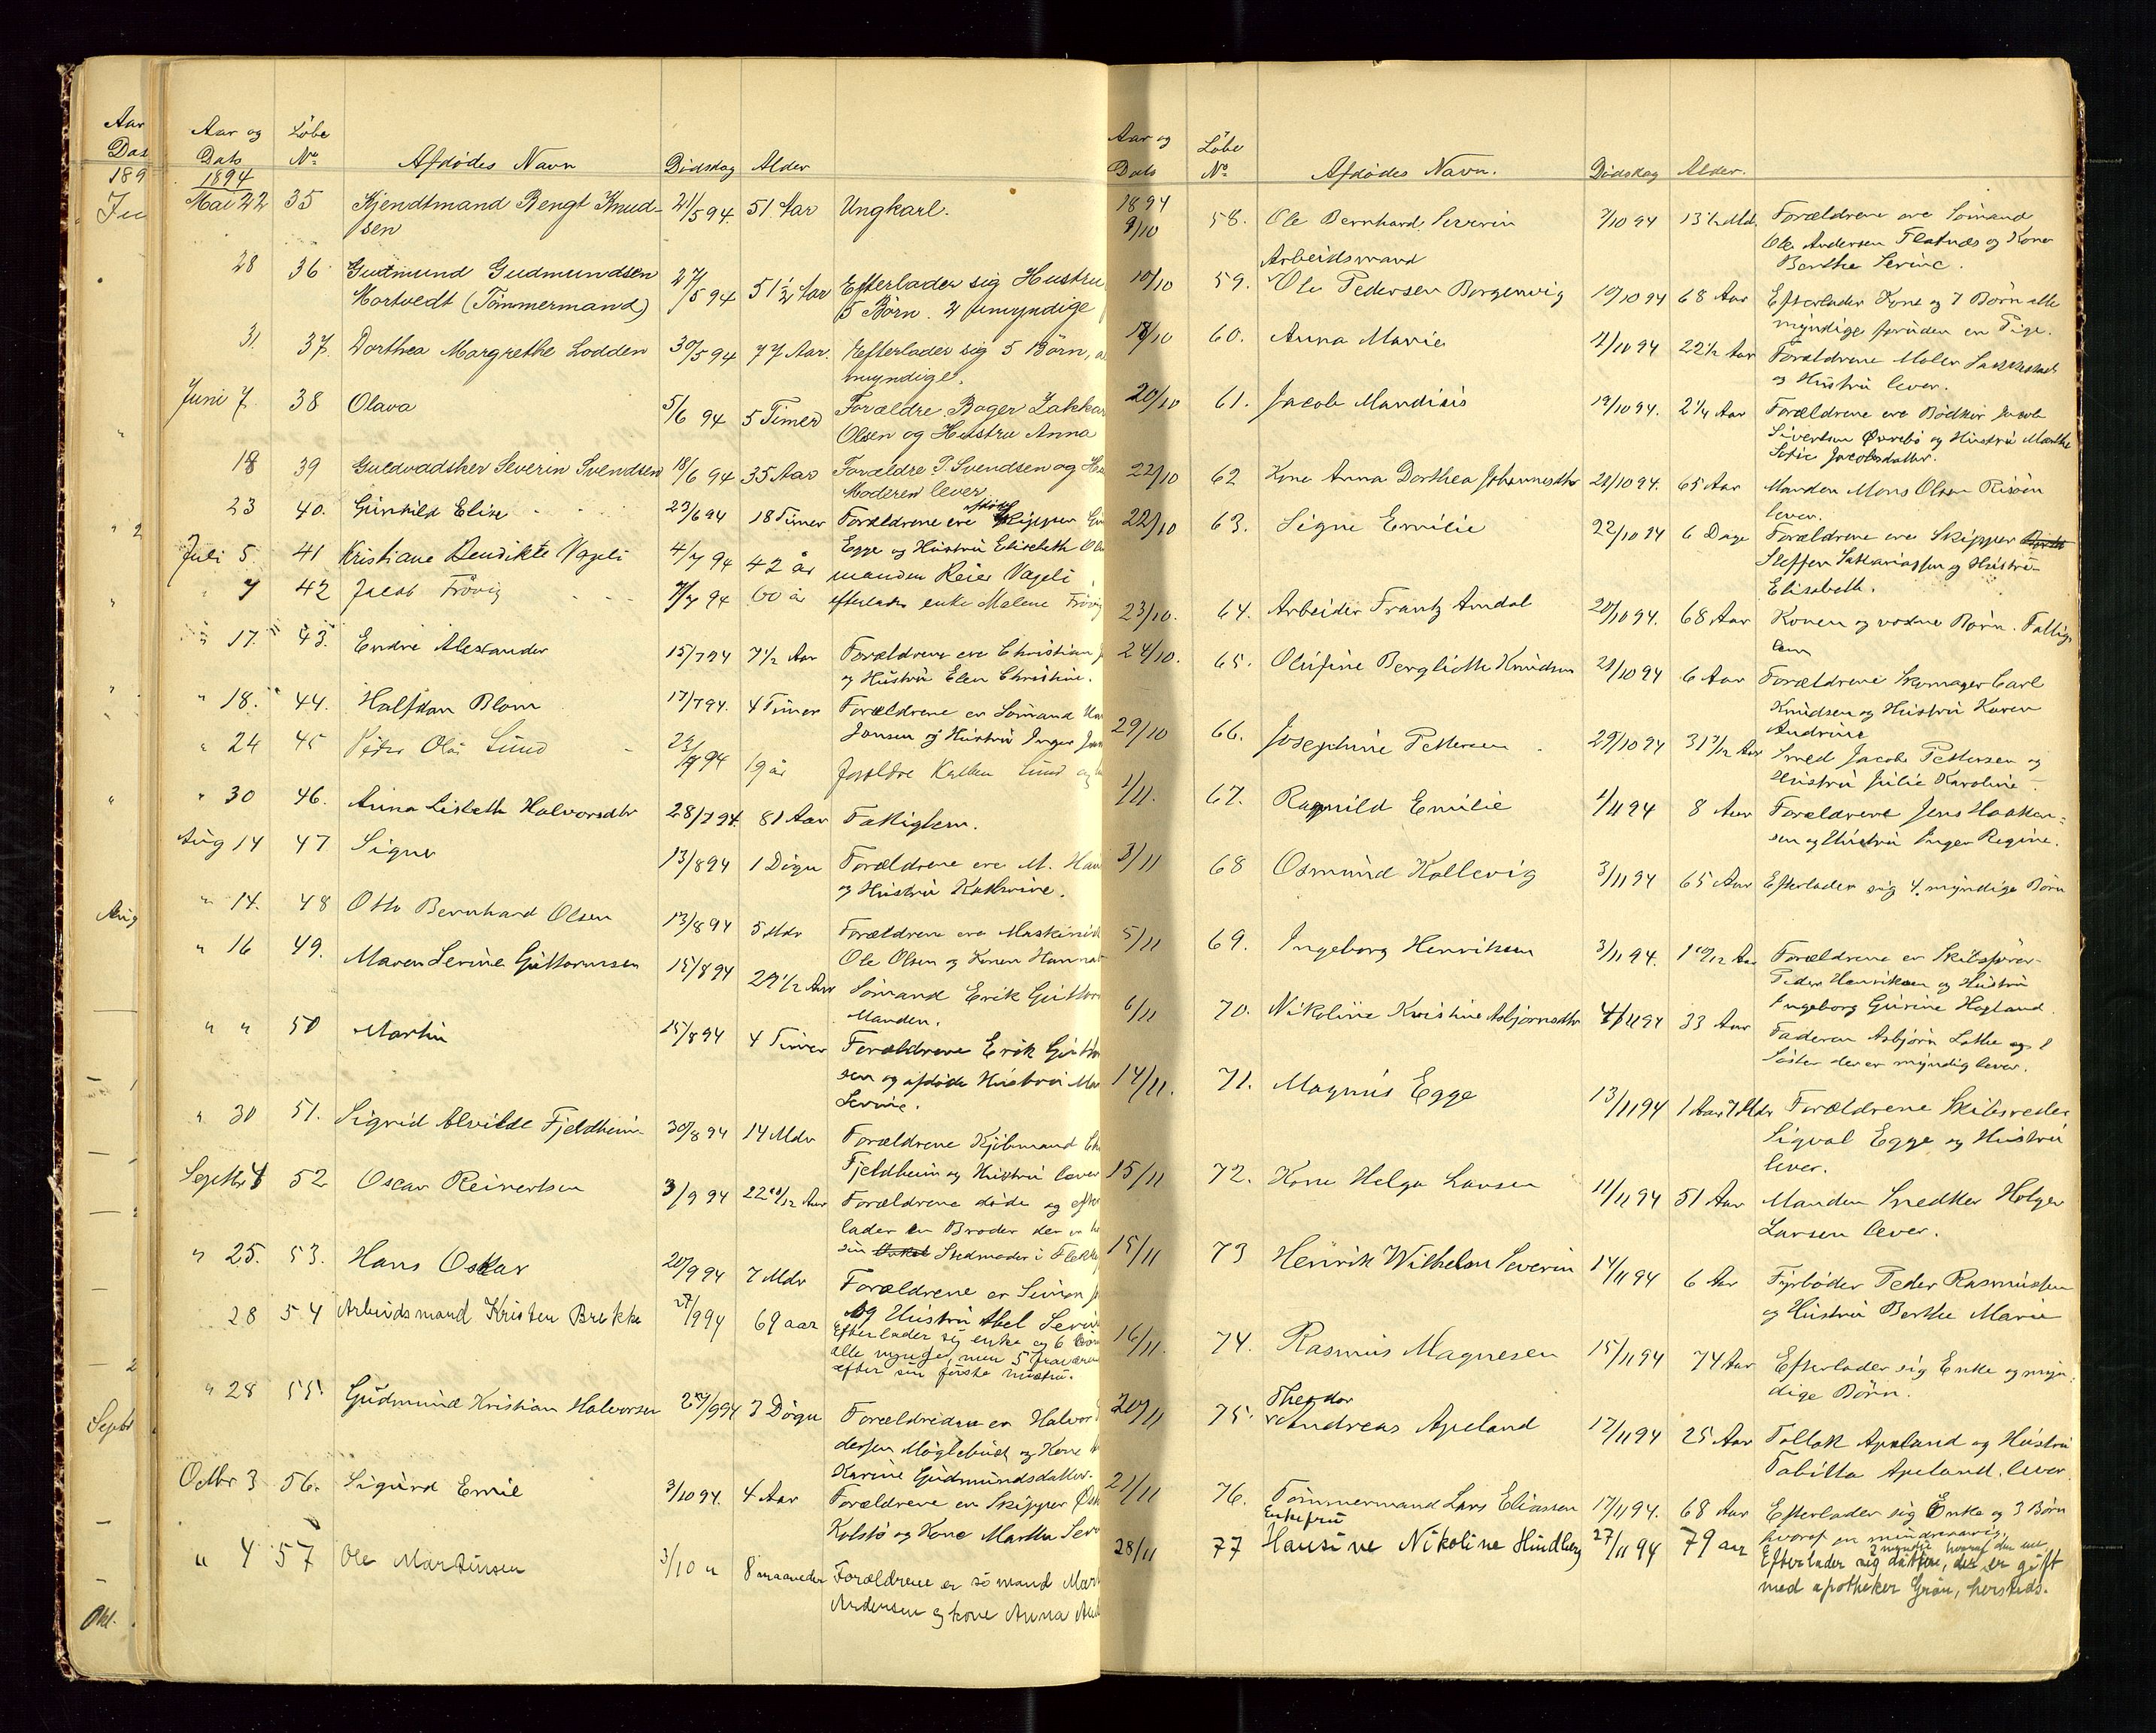 Aar
Dat
189
Aug
Septbr
Okt.
Aar og Löbe
Dats No Afdödes Navn Dödsdag Alder
1894
Mai 22 35 Kjendtmand Bengt Knud- 21/5 94 51 Aar Ungkarl.
sen
28 36 Gudmund Gudmundsen 27/5 94 51 1/2 Aar Efterlader sig Hustru
Mortvedt (Tömmermand) 5 Börn. 2 umyndige
31. 37. Dorthea Margrethe Lodden 30/5 94 77 Aar. Efterlader sig 5 Börn, a
myndige.
Juni 7. 38 Olava 5/6 94 5 Timer Forældre Bager Zakka
Olsen og Hustru Anna
18 39 Guldvadsker Severin Svendsen 18/6 94 35 Aar Forældre P. Svendsen og H
Moderen lever
23 40. Gunhild Elise 23/6 94 18 Timer Forældrene ere Skipper
Egge og Hustru Elisebeth
Juli 5. 41 Kristiane Bendikte Vageli 4/7 94 42 år manden Reier Vageli
" 7 42 Jacob Frövig 7/7 94 60 år efterlader enke Malene Frövig
" 17. 43. Endre Alexander 15/7 94 7 1/2 Aar Forældrene ere Christian
og Hustru Elen Christine.
" 18. 44. Halfdan Blom 17/7 94. 4 Timer Forældrene er Sömand
Jansen og Hustru Inger
" 24 45 Peter Olai Lund 23/7 94 19 år foreldre Kalken Lund og
" 30 46. Anna Lisbeth Halvorsdtr 28/7 94. 81 Aar Fattiglem.
Aug 14 47 Signe 13/8 94 1 Dögn Forældrene ere M. Han
og Hustru Kathrine.
" 14. 48 Otto Bernhard Olsen 13/8 94 5 Mdr Forældrene ere Maskinist
Ole Olsen og Konen Hanna
" 16 49. Maren Serine Guttormsen 15/8 94 29 1/2 Aar Sömand Erik Guttor
Manden.
" " 50 Martin 15/8 94 4 Timer Forældrene Erik Guttor
sen og afdöde Hustru Ma
Serine.
" 30 51. Sigrid Alvilde Fjeldheim 30/8 94 14 Mdr Forældrene Kjöbmand
Fjeldheim og Hustru lever
Septbr 4 52 Oscar Reinertsen 3/9 94 22 10/12 Aar Forældrene döde og efter
lader en Broder der er
sin Stedmoder i Flekke
" 25. 53. Hans Oskar 20/9 94 7 Mdr Forældrene er Simon
og Hustru Abel Serine
28 54 Arbeidsmand Kristen Brekke 27/9 94 69 aar Efterlader sig enke og 6 Börn
alle myndige, men 5 fraværen
efter sin förste hustru.
" 28 55. Gudmund Kristian Halvorsen 27/9 94 3 Dögn Forældrene er Halvor
dersen Möglebust og Kone
Karine Gudmundsdatter.
Octbr 3 56. Sigurd Emil 3/10 94. 4 Aar Forældrene er Skipper
Kolstö og Kone Martha Ser
" 4 57 Ole Martinsen 3/10 " 8 maaneder Forældrene er sömand Mar
Andersen og kone Anna
Aar og Löbe
Dats No Afdödes Navn. Dödsdag Alder.
1894
9/10 58. Ole Bernhard Severin 7/10 94 13 1/2 Md. Forældrene ere Sömand
Ole Andersen Flatnæs og Kone
Berthe Serine.
Arbeidsmand
10/10 59. Ole Pedersen Borgenvig 10/10 94 68 Aar Efterlader Kone og 7 Börn alle
myndige foruden en Pige.
18/10 60. Anna Marie 12/10 94 22 1/2 Aar Forældrene Maler
og Hustru lever.
20/10 61. Jacob Mandius 19/10 94. 2 1/4 Aar Forældrene ere Bödker Jacob
Sivertsen Övrebö og Hustru Marthe
Sofie Jacobsdatter.
22/10 62 Kone Anna Dorthea Johannesdtr 21/10 94. 65 Aar Manden Mons Olsen Risöen
lever.
22/10 63. Signe Emilie 22/10 94 6 Dage Forældrene ere Skipper
Steffen Sakariassen og Hustru
Elisabeth.
23/10. 64. Arbeider Frantz Amdal 20/10 94. 68 Aar Konen og voxne Börn. Fattig
lem
24/10. 65. Olufine Bergliothe Knudsen 21/10 94 6 Aar Forældrene Skomager Carl
Knudsen og Hustru Karen
Andrine
29/10 66. Josephine Pettersen 29/10 94 31 7/12 Aar Smed Jacob Pettersen og
Hustru Julie Karoline.
1/11. 67. Ragnild Emilie 1/11 94 8 Aar Forældrene Jens Haaken-
sen og Hustru Inger Regine.
3/11 68 Osmund Kallevig 3/11 94 65 Aar Efterlader sig 4. myndige Börn
5/11 69. Ingeborg Henriksen 3/11 94. 1 10/12 Aar Forældrene er Skibsförer
Peder Henriksen og Hustru
Ingeborg Gurine Hegland.
6/11 70. Nikoline Kristine Asbjörnsdtr 4/11 94 33 Aar Faderen Asbjörn Lothe og 1
Söster der er myndig lever.
14/11. 71. Magnus Egge 13/11 94 1 Aar 7 Mdr Forældrene Skibsreder
Sigval Egge og Hustru
lever.
15/11 72. Kone Helga Larsen 11/11 94 51 Aar Manden Snedker Holger
Larsen lever.
15/11 73 Henrik Wilhelm Severin 14/11 94 6 Aar Fyrböder Peder Rasmussen
og Hustru Berthe Marie
16/11. 74. Rasmus Magnesen 15/11 94 74 Aar Efterlader sig Enke og myn-
dige Börn.
Theodor
20/11 75. Andreas Apeland 17/11 94 25 Aar Tollak Apeland og Hustru
Tabitta Apeland. lever
21/11 76. Tömmermand Lars Eliassen 17/11 94. 68 Aar Efterlader sig Enke og 3 Börn
hvoraf en mindreaarig.
Enkefru
28/11 77 Hansine Nikoline Hindberg 27/11 94 79 aar Efterlader sig döttre, der er gift
med apotheker Grön, hersteds.